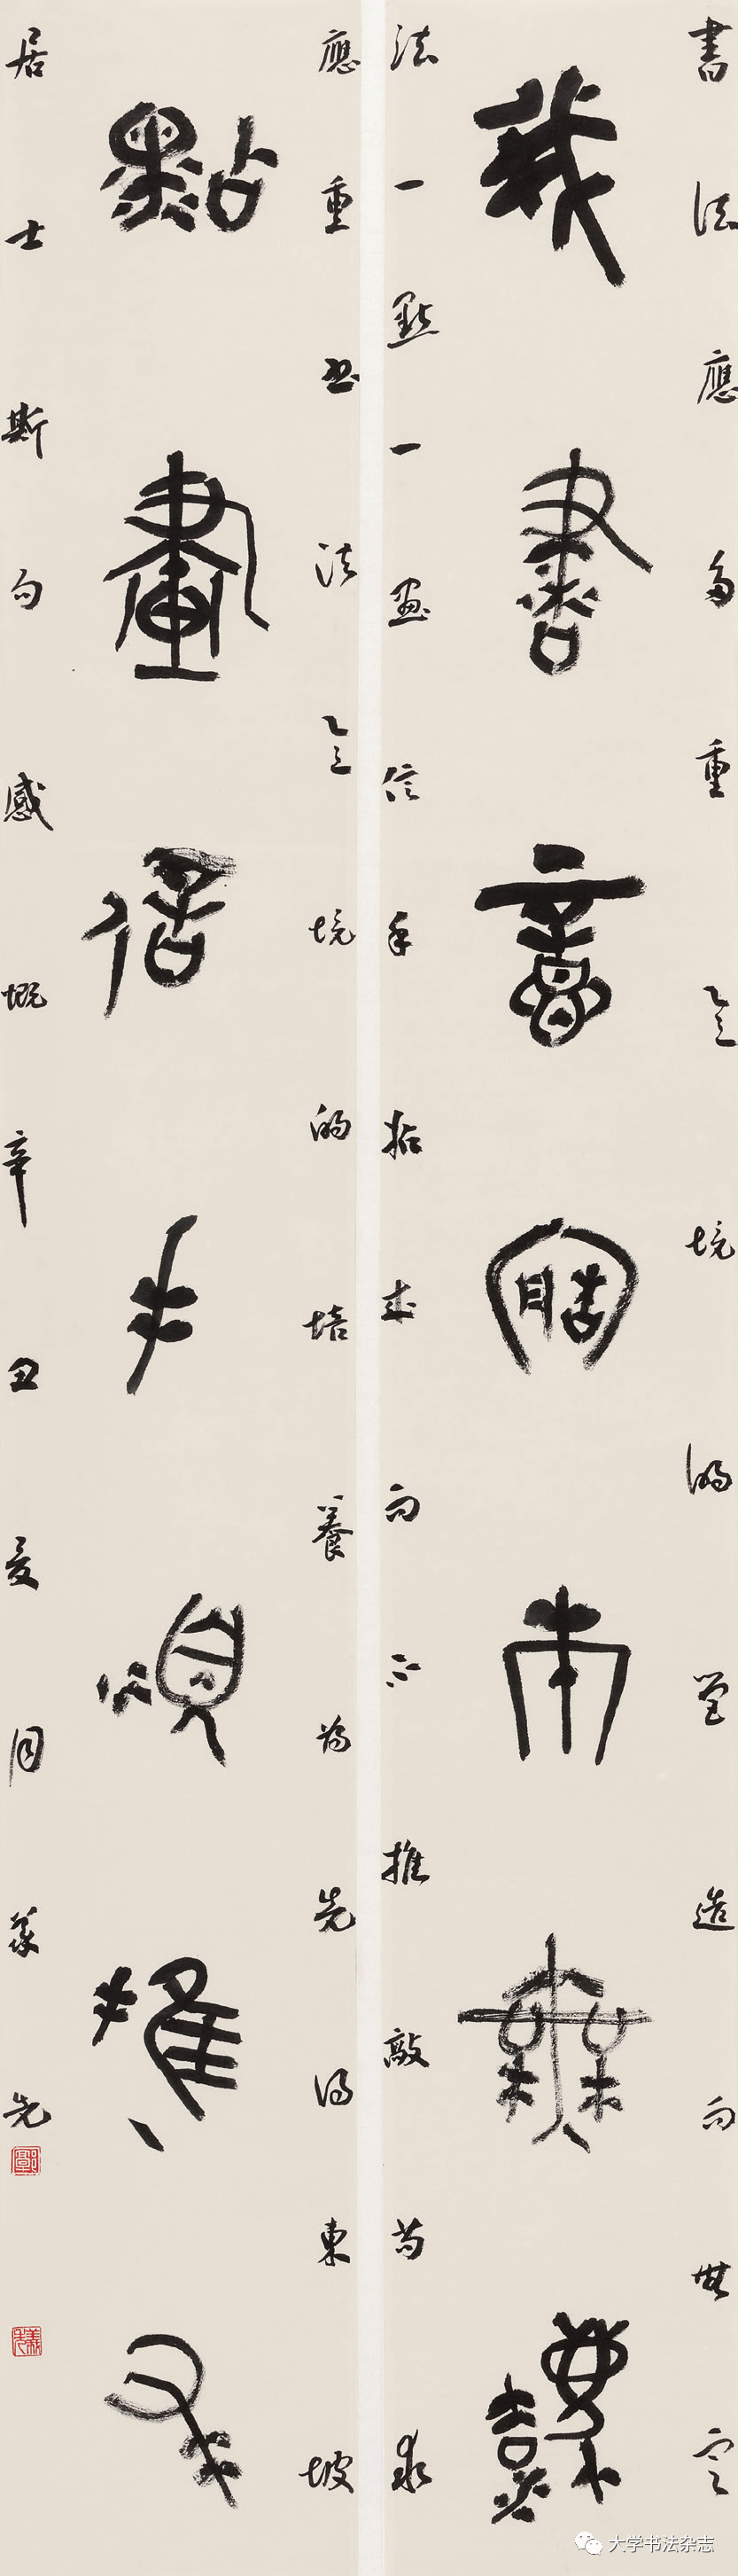 書法應多重意境的營造而無定
我書意造本無法
法一點一畫信手拈來而不推敲苟求
應重書法意境的培養為先得東坡
點畫信手煩推求
居士斯句感慨辛丑夏月義先
大学书法杂志